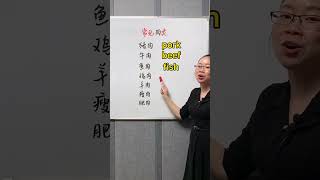 常见肉类
猪肉 pork
牛肉 beef
鱼肉 fish
鸡肉
羊肉
瘦肉
肥肉
鱼
鸡
羊
瘦
肥